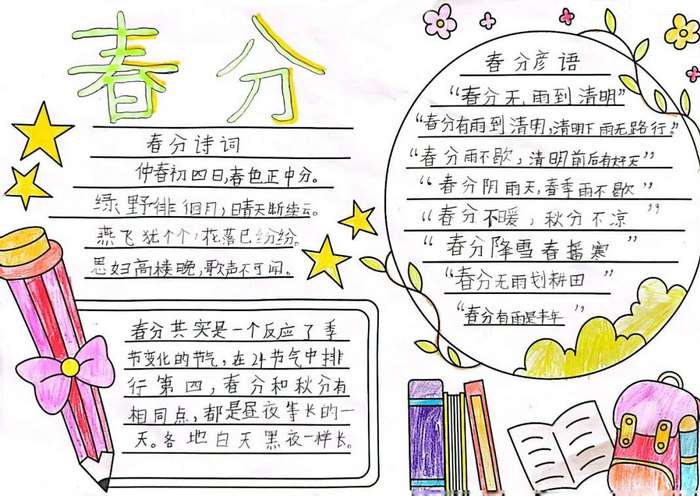 春分
春分诗词
仲春初四日,春色正中分。
绿野徘徊月,晴天断续云。
燕飞犹个个,花落已纷纷。
思妇高楼晚,歌声不可闻。
春分共实是一个反应了季
节变化的节气,在24节气中排
行第四,春分和秋分有
相同点,都是昼夜等长的一
天。各地白天黑夜一样长。
春分彦语
“春分无雨到清明”
“春分有雨到清明,清明下雨无路行”
“春分雨不歇,清明前后有好天”
“春分阴雨天,春季雨不歇”
“春分不暖,秋分不凉”
“春分降雪春播寒”
“春分无雨划耕田”
“春分有雨是丰年”